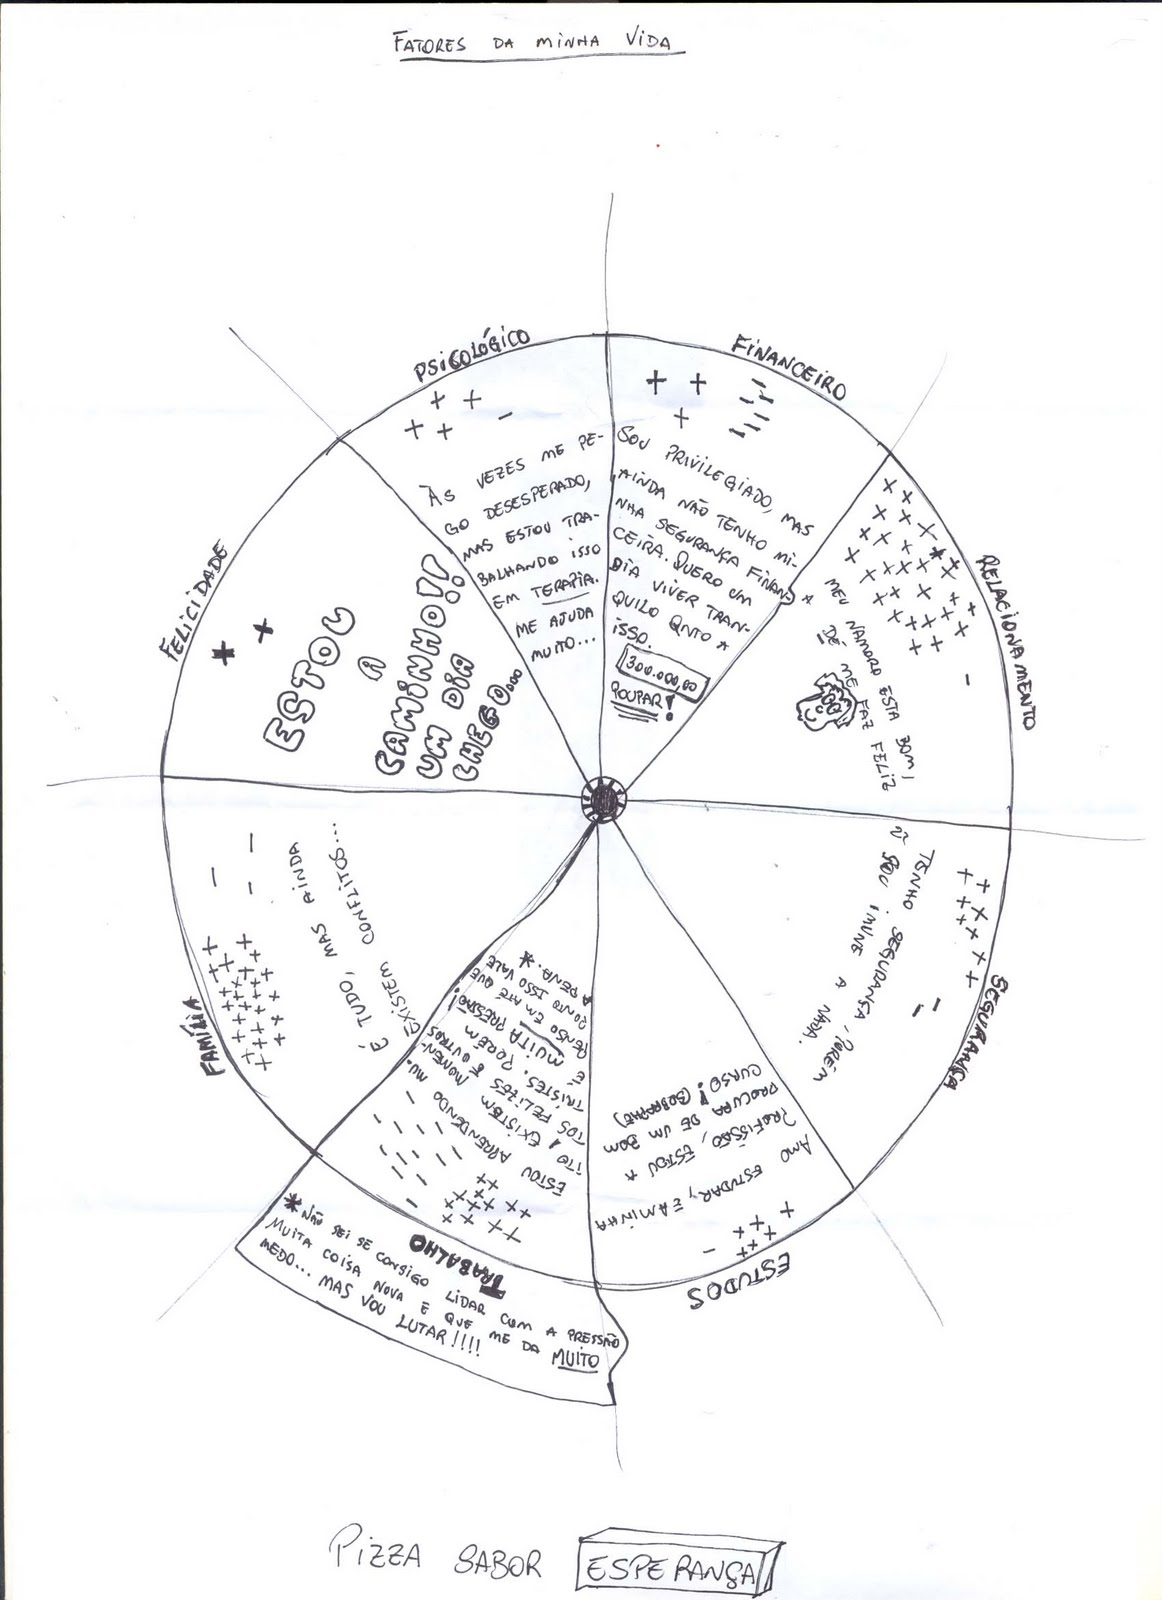 FATORES DA MINHA VIDA
PSICOLÓGICO
+ +
+ + -
ÀS VEZES ME PE-
GO DESESPERADO,
MAS ESTOU TRA-
BALHANDO ISSO
EM TERAPIA.
ME AJUDA
MUITO...
FINANCEIRO
SOU PRIVILEGIADO, MAS
AINDA NÃO TENHO MI-
NHA SEGURANÇA FINAN-
CEIRA. QUERO UM
DIA VIVER TRAN-
QUILO QNTO A
ISSO.
300.000,00
POUPAR!
RELACIONAMENTO
MEU NAMORO ESTA BOM,
ME FAZ FELIZ
SEGURANÇA
TENHO SEGURANÇA, PORÉM
Ñ SOU IMUNE A NADA.
ESTUDOS
AMO ESTUDAR, E A MINHA
PROFISSÃO, ESTOU A
PROCURA DE UM BOM
CURSO!
TRABALHO
ESTOU APRENDENDO MU-
ITO, EXISTEM MOMEN-
TOS FELIZES E OUTROS
TRISTES. PORÉM
É MUITA PRESSÃO!
PENSO EM ATÉ QUE
PONTO ISSO VALE
A PENA. *
*NÃO SEI SE CONSIGO LIDAR COM A PRESSÃO
MUITA COISA NOVA E QUE ME DA MUITO
MEDO... MAS VOU LUTAR!!!!
FAMÍLIA
É TUDO, MAS AINDA
EXISTEM CONFLITOS...
FELICIDADE
ESTOU
A
CAMINHO!!
UM DIA
CHEGO...
PIZZA SABOR ESPERANÇA